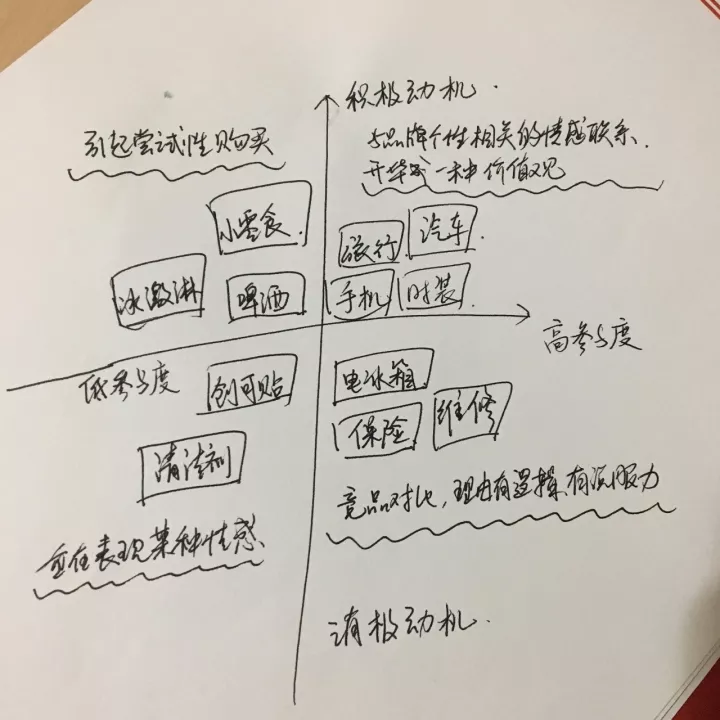 积极动机.
引起尝试性购买
与品牌个性相关的情感联系.
升华成一种价值观
小零食.
冰激淋
啤酒
旅行.
汽车.
手机
时装.
高参与度
低参与度
创可贴
清洁剂
电冰箱
保险
维修
竞品对比,理由有逻辑、有说服力
意在表现某种性感
消极动机.